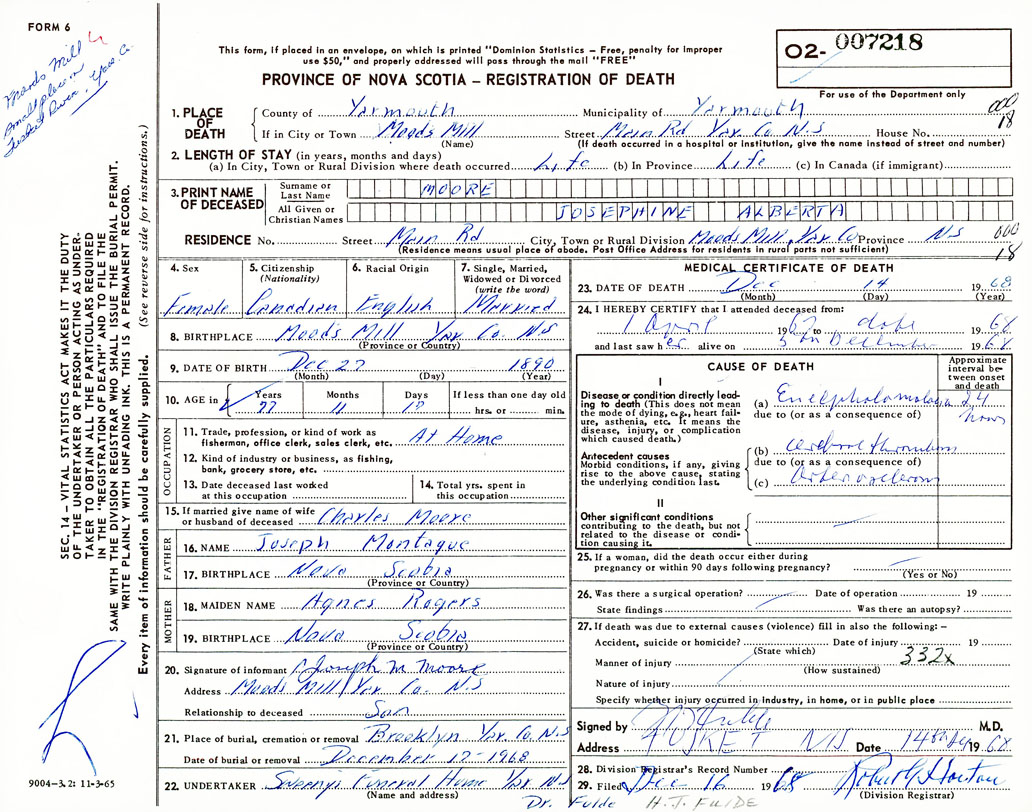 FORM 6
Moods Mill
small place in
Yar. Co.
This form, if placed in an envelope, on which is printed "Dominion Statistics – Free, penalty for improper
use $50," and properly addressed will pass through the mail "FREE"
PROVINCE OF NOVA SCOTIA – REGISTRATION OF DEATH
02- 007218
For use of the Department only
000
18
1. PLACE OF DEATH
County of Yarmouth Municipality of Yarmouth
If in City or Town Moods Mill Street Main Rd Yar. Co N.S House No.
(Name) (If death occurred in a hospital or institution, give the name instead of street and number)
2. LENGTH OF STAY (in years, months and days)
(a) In City, Town or Rural Division where death occurred Life (b) In Province Life (c) In Canada (if immigrant)
3. PRINT NAME OF DECEASED
Surname or Last Name MOORE
All Given or Christian Names JOSEPHINE ALBERTA
RESIDENCE No. Street Main Rd City, Town or Rural Division Moods Mill, Yar. Co Province N.S
(Residence means usual place of abode. Post Office Address for residents in rural parts not sufficient)
000
18
4. Sex Female
5. Citizenship (Nationality) Canadian
6. Racial Origin English
7. Single, Married, Widowed or Divorced (write the word) Married
8. BIRTHPLACE Moods Mill Yar Co. N.S
(Province or Country)
9. DATE OF BIRTH Dec 27 1890
(Month) (Day) (Year)
10. AGE in Years Months Days If less than one day old
77 11 hrs. or min.
OCCUPATION
11. Trade, profession, or kind of work as
fisherman, office clerk, sales clerk, etc. At Home
12. Kind of industry or business, as fishing,
bank, grocery store, etc.
13. Date deceased last worked
at this occupation
14. Total yrs. spent in
this occupation
15. If married give name of wife
or husband of deceased Charles Moore
FATHER
16. NAME Joseph Montague
17. BIRTHPLACE Nova Scotia
(Province or Country)
MOTHER
18. MAIDEN NAME Agnes Rogers
19. BIRTHPLACE Nova Scotia
(Province or Country)
20. Signature of informant Joseph M. Moore
Address Moods Mill Yar Co. N.S
Relationship to deceased Son
21. Place of burial, cremation or removal Brooklyn Yar. Co. N.S
Date of burial or removal December 17-1968
22. UNDERTAKER Sweeny's Funeral Home Yar N.S
(Name and address)
MEDICAL CERTIFICATE OF DEATH
23. DATE OF DEATH Dec 14 1968
(Month) (Day) (Year)
24. I HEREBY CERTIFY that I attended deceased from:
1 April 1967 to date 1968
and last saw her alive on December 1968
CAUSE OF DEATH
Approximate interval between onset and death
I
Disease or condition directly leading to death (This does not mean the mode of dying, e.g., heart failure, asthenia, etc. It means the disease, injury, or complication which caused death.)
(a) Encephalomalacia 24 hours
due to (or as a consequence of)
Antecedent causes
Morbid conditions, if any, giving rise to the above cause, stating the underlying condition last.
(b) cerebral thrombosis
due to (or as a consequence of)
(c) Arteriosclerosis
II
Other significant conditions
contributing to the death, but not related to the disease or condition causing it.
25. If a woman, did the death occur either during
pregnancy or within 90 days following pregnancy?
(Yes or No)
26. Was there a surgical operation? Date of operation 19
State findings Was there an autopsy?
27. If death was due to external causes (violence) fill in also the following: –
Accident, suicide or homicide? Date of injury 19
(State which)
Manner of injury 332x
(How sustained)
Nature of injury
Specify whether injury occurred in industry, in home, or in public place
Signed by M.D.
Address TUSKET N.S Date 14 1968
28. Division Registrar's Record Number
29. Filed Dec 16 1968 Robert Horton
(Division Registrar)
Dr. Fulde H.J. FULDE
SEC. 14 – VITAL STATISTICS ACT MAKES IT THE DUTY
OF THE UNDERTAKER OR PERSON ACTING AS UNDER-
TAKER TO OBTAIN ALL THE PARTICULARS REQUIRED
IN THE "REGISTRATION OF DEATH" AND TO FILE THE
SAME WITH THE DIVISION REGISTRAR WHO SHALL ISSUE THE BURIAL PERMIT.
WRITE PLAINLY WITH UNFADING INK. THIS IS A PERMANENT RECORD.
Every item of information should be carefully supplied. (See reverse side for instructions.)
9004-3.2: 11-3-65